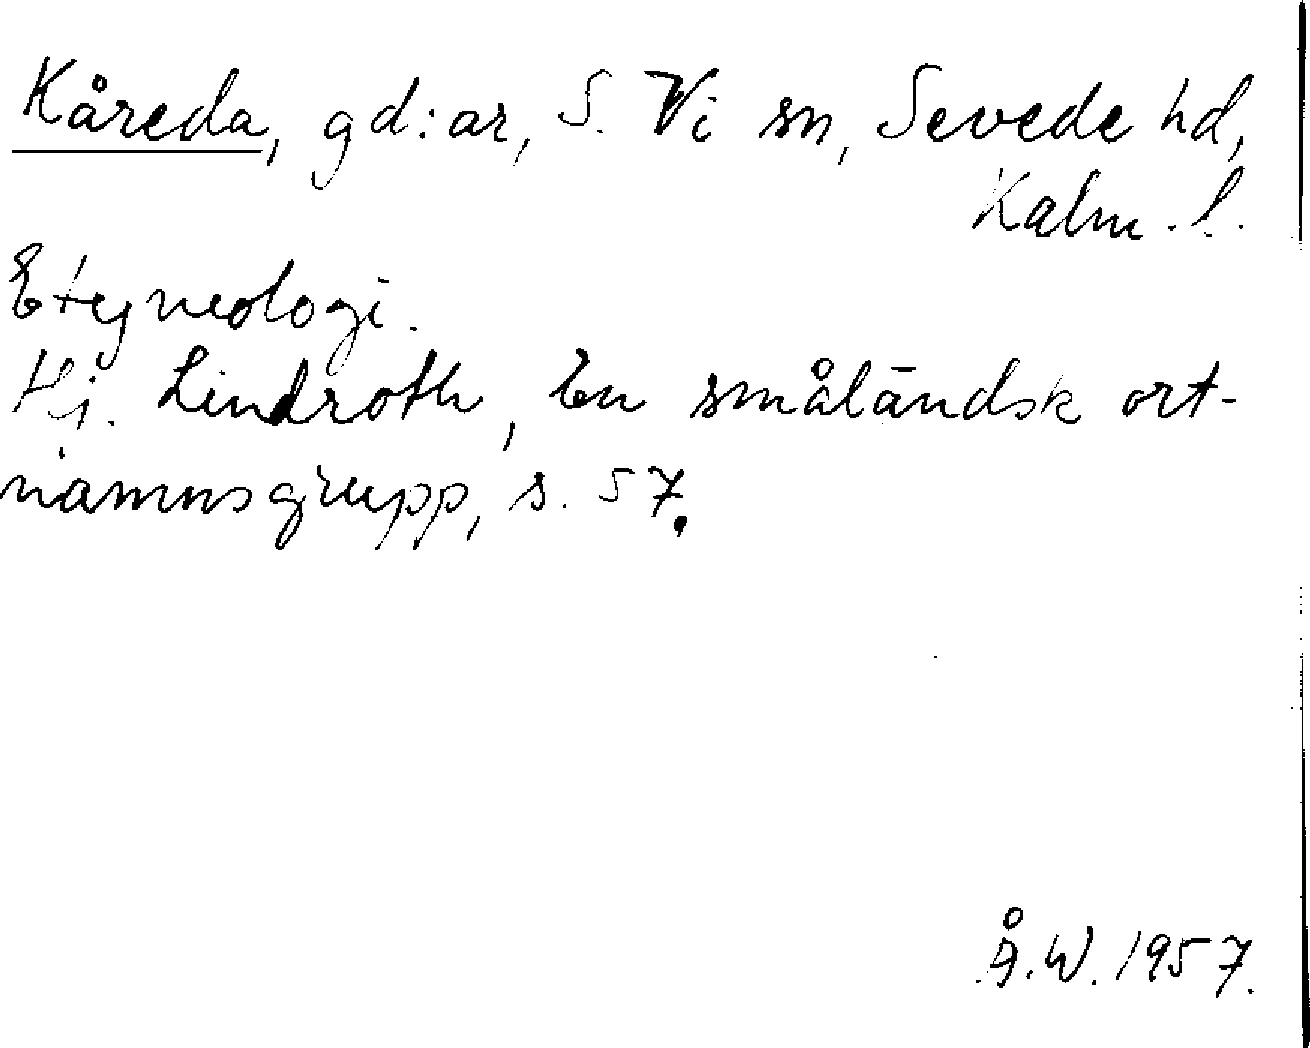 Kåreda, gd:ar, S. Vi sn, Sevede hd,
Kalm. l.
Etymologi.
Hj. Lindroth, En småländsk ort-
namnsgrupp, s. 57.
Å.W. 1957.